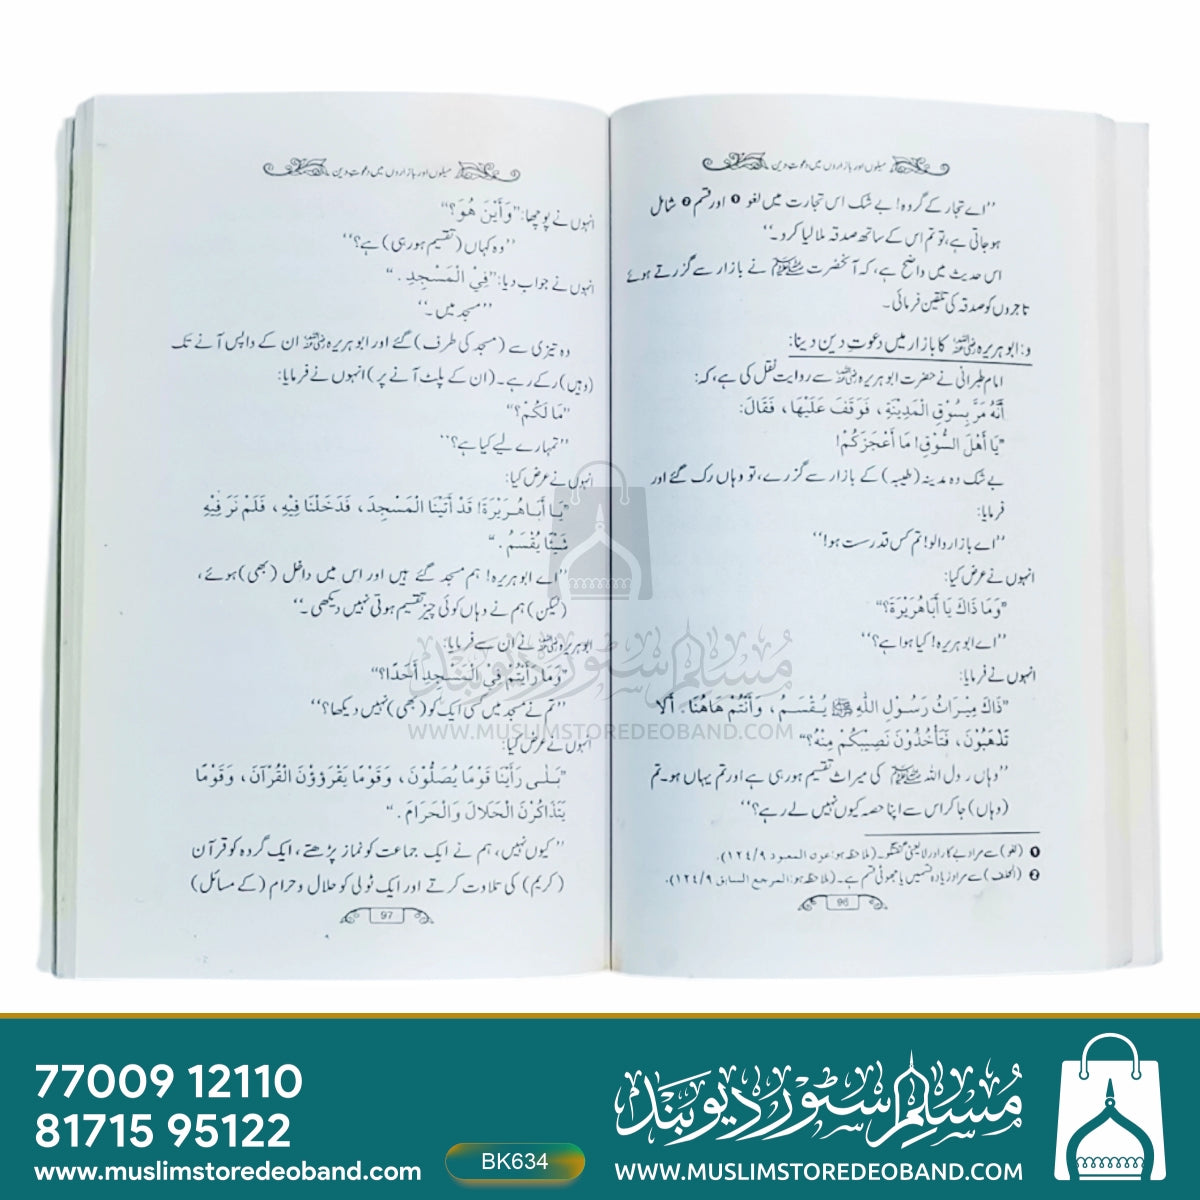 میلوں اور بازاروں میں دعوتِ دین
’’اے تجار کے گروہ! بے شک اس تجارت میں لغو ❶ اور قسم ❷ شامل
ہو جاتی ہے، تو تم اس کے ساتھ صدقہ ملا لیا کرو۔‘‘
اس حدیث میں واضح ہے، کہ آنحضرت ﷺ نے بازار سے گزرتے ہوئے
تاجروں کو صدقہ کی تلقین فرمائی۔
و: ابو ہریرہ رضی اللہ عنہ کا بازار میں دعوتِ دین دینا:
امام طبرانی نے حضرت ابو ہریرہ رضی اللہ عنہ سے روایت نقل کی ہے، کہ:
أَنَّهُ مَرَّ بِسُوْقِ الْمَدِيْنَةِ، فَوَقَفَ عَلَيْهَا، فَقَالَ:
”يَا أَهْلَ السُّوْقِ! مَا أَعْجَزَكُمْ!
بے شک وہ مدینہ (طیبہ) کے بازار سے گزرے، تو وہاں رک گئے اور
فرمایا:
’’اے بازار والو! تم کس قدر سست ہو!‘‘
انہوں نے عرض کیا:
”وَمَا ذَاكَ يَا أَبَاهُرَيْرَةَ؟“
’’اے ابو ہریرہ! کیا ہوا ہے؟‘‘
انہوں نے فرمایا:
”ذَاكَ مِيْرَاثُ رَسُوْلِ اللهِ ﷺ يُقْسَمُ، وَأَنْتُمْ هَاهُنَا. أَلَا
تَذْهَبُوْنَ، فَتَأْخُذُوْنَ نَصِيْبَكُمْ مِنْهُ؟“
’’وہاں رسول اللہ ﷺ کی میراث تقسیم ہو رہی ہے اور تم یہاں ہو۔ تم
(وہاں) جا کر اس سے اپنا حصہ کیوں نہیں لے رہے؟‘‘
❶ (لغو) سے مراد بے کار اور لایعنی گفتگو۔ (ملاحظہ ہو: عون المعبود ۱۲۴/۹).
❷ (الحلف) سے مراد زیادہ قسمیں یا جھوٹی قسم ہے۔ (ملاحظہ ہو: المرجع السابق ۱۲۴/۹).
96
میلوں اور بازاروں میں دعوتِ دین
انہوں نے پوچھا: ”وَأَيْنَ هُوَ؟“
’’وہ کہاں (تقسیم ہو رہی) ہے؟‘‘
انہوں نے جواب دیا: ”فِي الْمَسْجِدِ.“
’’مسجد میں۔‘‘
وہ تیزی سے (مسجد کی طرف) گئے اور ابو ہریرہ رضی اللہ عنہ ان کے واپس آنے تک
(وہیں) رکے رہے۔ (ان کے پلٹ آنے پر) انہوں نے فرمایا:
”مَا لَكُمْ؟“
’’تمہارے لیے کیا ہے؟‘‘
انہوں نے عرض کیا:
”يَا أَبَاهُرَيْرَةَ! قَدْ أَتَيْنَا الْمَسْجِدَ، فَدَخَلْنَا فِيْهِ، فَلَمْ نَرَ فِيْهِ
شَيْئًا يُقْسَمُ.“
’’اے ابو ہریرہ! ہم مسجد گئے ہیں اور اس میں داخل (بھی) ہوئے،
(لیکن) ہم نے وہاں کوئی چیز تقسیم ہوتی نہیں دیکھی۔‘‘
ابو ہریرہ رضی اللہ عنہ نے ان سے فرمایا:
”وَمَا رَأَيْتُمْ فِي الْمَسْجِدِ أَحَدًا؟“
’’تم نے مسجد میں کسی ایک کو (بھی) نہیں دیکھا؟‘‘
انہوں نے عرض کیا:
”بَلَى رَأَيْنَا قَوْمًا يُصَلُّوْنَ، وَقَوْمًا يَقْرَؤُوْنَ الْقُرْآنَ، وَقَوْمًا
يَتَذَاكَرُوْنَ الْحَلَالَ وَالْحَرَامَ.“
’’کیوں نہیں، ہم نے ایک جماعت کو نماز پڑھتے، ایک گروہ کو قرآن
(کریم) کی تلاوت کرتے اور ایک ٹولی کو حلال و حرام (کے مسائل)
97
مسلم سٹور دیوبند
WWW.MUSLIMSTOREDEOBAND.COM
77009 12110
81715 95122
www.muslimstoredeoband.com
BK634
مسلم سٹور دیوبند
WWW.MUSLIMSTOREDEOBAND.COM